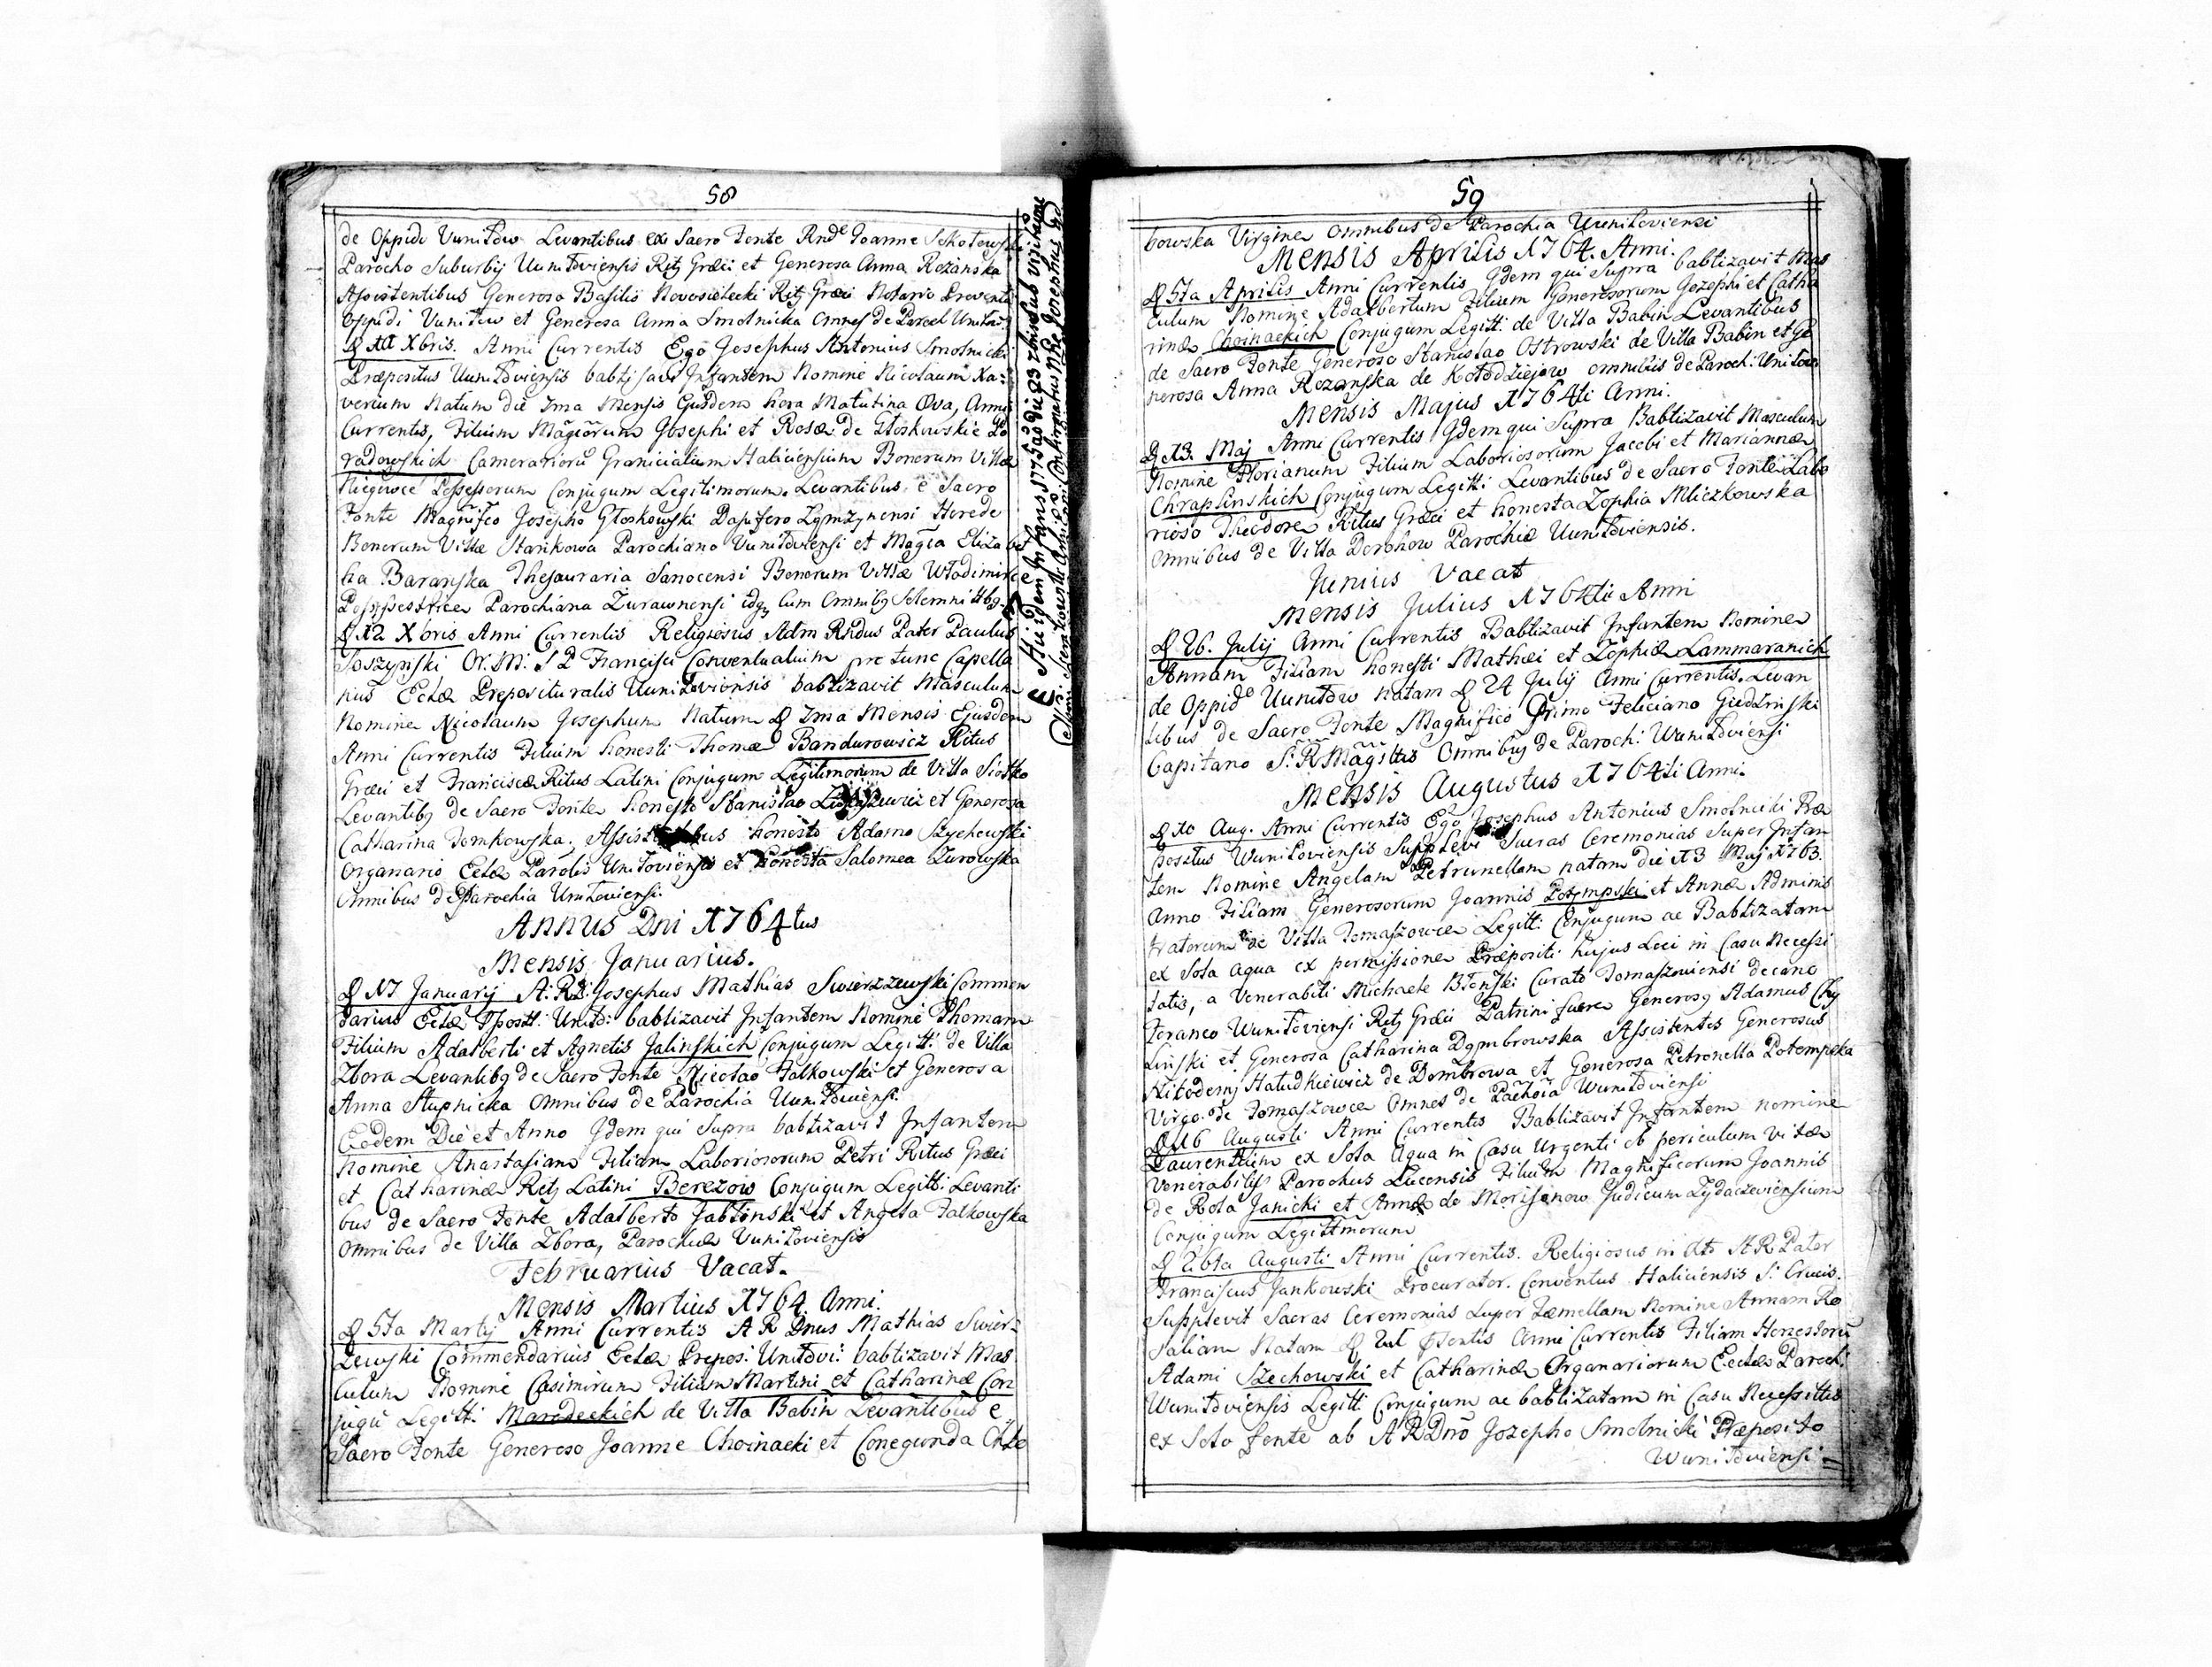 58
de Oppido Uunitow Levantibus ex Sacro Fonte Rndo Joanne Sokotowski
Parocho Suburbij Uunitoviensis Ritg Græci et Generosa Anna Rozanska
Assistentibus Generoso Basilio Novosielecki Ritg Græci Notario
Oppidi Vunitow et Generosa Anna Smolnicka omnes de Paroch Unitov
D XII Xbris. Anni Currentis Ego Josephus Antonius Smolnicki
Præpositus Uunitoviensis babtisavi Infantem Nomine Nicolaum Xa:
verium Natum die Ima Mensis Ejusdem hora Matutina Anni
Currentis, Filium Magcorum Josephi et Rosæ de Głoskowskie Po
radowskich Camerarioru Granicialium Haliciensium Bonorum Villæ
Niegowce Possessorum Conjugum Legitimorum. Levantibus e Sacro
Fonte Magnifco Josepho Głoskowski Dapifero Herede
Bonorum Villæ Stankowa Parochiano Vunitoviensi et Magca Elizabet
ha Baranska Thesauraria Sanocensi Bonorum Villæ Włodimirce
Possessrice Parochiana Zurawnensi idq cum Omnibg Solemnitibg.
D 12 Xbris Anni Currentis Religiosus Adm Rndus Pater Paulus
Soszynski Or. M: S P Francisci Conventualium pro tunc Capella
nus Eclæ Præposituralis Uunitoviensis babtizavit Masculum
Nomine Nicolaum Josephum Natum D Ima Mensis Ejusdem
Anni Currentis Filium honesti Thomæ Bandurowicz Ritus
Græci et Franciscæ Ritus Latini Conjugum Legitimorum de Villa Siolko
Levantibg de Sacro Fonte honesto Stanislao et Generosa
Catharina Tomkowska. Assistentibus honesto Adamo Szychowski
Organario Eclæ Parolis Unitoviensis et honesta Salomea Zurowska
Omnibus de Parochia Unitoviensi.
Annus Dni 1764tus
Mensis Januarius.
D 17 Januarij A: R: D: Josephus Mathias Swierzzewski Commen
darius Eclæ Ppostt. Unitd: babtizavit Infantem Nomine Thomam
Filium Adalberti et Agnetis Jalinskich Conjugum Legitt: de Villa
Zbora Levantibg de Sacro Fonte Nicolao Falkowski et Generosa
Anna Stupnicka omnibus de Parochia Uunitoviensi.
Eodem Die et Anno Idem qui Supra babtizavit Infantem
Nomine Anastasiam Filiam Laboriosorum Petri Ritus Græci
et Catharinæ Ritg Latini Berezow Conjugum Legitti: Levanti
bus de Sacro Fonte Adalberto Jabłonski et Angela Falkowska
Omnibus de Villa Zbora, Parochiæ Vunitoviensis
Februarius Vacat.
Mensis Martius 1764 Anni.
D 5ta Martij Anni Currentis A R Dnus Mathias Swier:
zewski Commendarius Eclæ Prepos: Unitovi: babtizavit Mas
culum Nomine Casimirum Filium Martini et Catharinæ Con
jugu Legitti: Maredeckich de Villa Babin Levantibus e
Sacro Fonte Generoso Joanne Choinacki et Conegunda
E Huidem Infans 1775 ad die 23
59
bowska Virgine omnibus de Parochia Uunitoviensi
Mensis Aprilis 1764. Anni.
D 5ta Aprilis Anni Currentis Idem qui Supra babtizavit Mas
culum Nomine Adalbertum Filium Generosorum Jozephi et Catha
rinæ Choinackich Conjugum Legitti: de Villa Babin Levantibus
de Sacro Fonte Generoso Stanislao Ostrowski de Villa Babin et Ge
nerosa Anna Rozanska de Kołodziejow omnibus de Paroch: Unitovi
Mensis Majus 1764ti Anni.
D 13. Maj Anni Currentis Idem qui Supra Babtizavit Masculum
Nomine Florianum Filium Laboriosorum Jacobi et Mariannæ
Chraplinskich Conjugum Legitti: Levantibus de Sacro Fonte Labo
rioso Theodore Ritus Græci et honesta Zophia Mliczkowska
omnibus de Villa Dorohow Parochiæ Uunitoviensis.
Junius Vacat
Mensis Julius 1764ti Anni
D 26. Julij Anni Currentis Babtizavit Infantem Nomine
Annam Filiam honesti Mathæi et Zophiæ Lammaranich
de Oppido Uunitow natam D 24 Julij Anni Currentis. Levan
tibus de Sacro Fonte Magnifico Primo Feliciano
Capitano S: R Magsttis Omnibus de Paroch: Wunitoviensi
Mensis Augustus 1764ti Anni.
D 10 Aug. Anni Currentis Ego Josephus Antonius Smolnicki Præ
positus Wunitoviensis Supplevi Sacras Ceremonias Super Infan
tem Nomine Angelam Petrunellam natam die 13 Maj 1763.
Anno Filiam Generosorum Joannis Potempski et Annæ Adminis
tratorum de Villa Tomaszowce Legitti: Conjugum ac Babtizatam
ex Sola aqua ex permissione Præpositi hujus Loci in Casu Necessi
tatis, a Venerabili Michaele Błonski Curato Tomaszoviensi decano
foraneo Wunitoviensi Ritg Græci Patrini fuere Generosg Adamus Chy
linski et Generosa Catharina Dymbrowska Assistentes Generosus
Nikodemg Hatudkiewicz de Dombrowa et Generosa Petronella Potempska
Virgo de Tomaszowce Omnes de Pachoia Wunitoviensi
D 16 Augusti Anni Currentis Babtizavit Infantem nomine
Laurentium ex Sola Aqua in Casu Urgenti ob periculum vitæ
Venerabilis Parochus Lucensis Filium Magnificorum Joannis
de Rola Janicki et Annæ de Morisonow Judicum Zydaczoviensium
Conjugum Legittimorum
D 26ta Augusti Anni Currentis. Religiosus in Xto A R Pater
Franciscus Jankowski Procurator Conventus Haliciensis S: Crucis.
Supplevit Sacras Ceremonias Super Fæmellam Nomine Annam Ro
saliam Natam D Anni Currentis Filiam Honestoru
Adami Szechowski et Catharinæ Organariorum Eclæ Paroch:
Wunitoviensis Legitti: Conjugum ac babtizatam in Casu Necessittis
ex Sola fonte ab A R Dno Jozepho Smolnicki Præposito
Wunitoviensi.